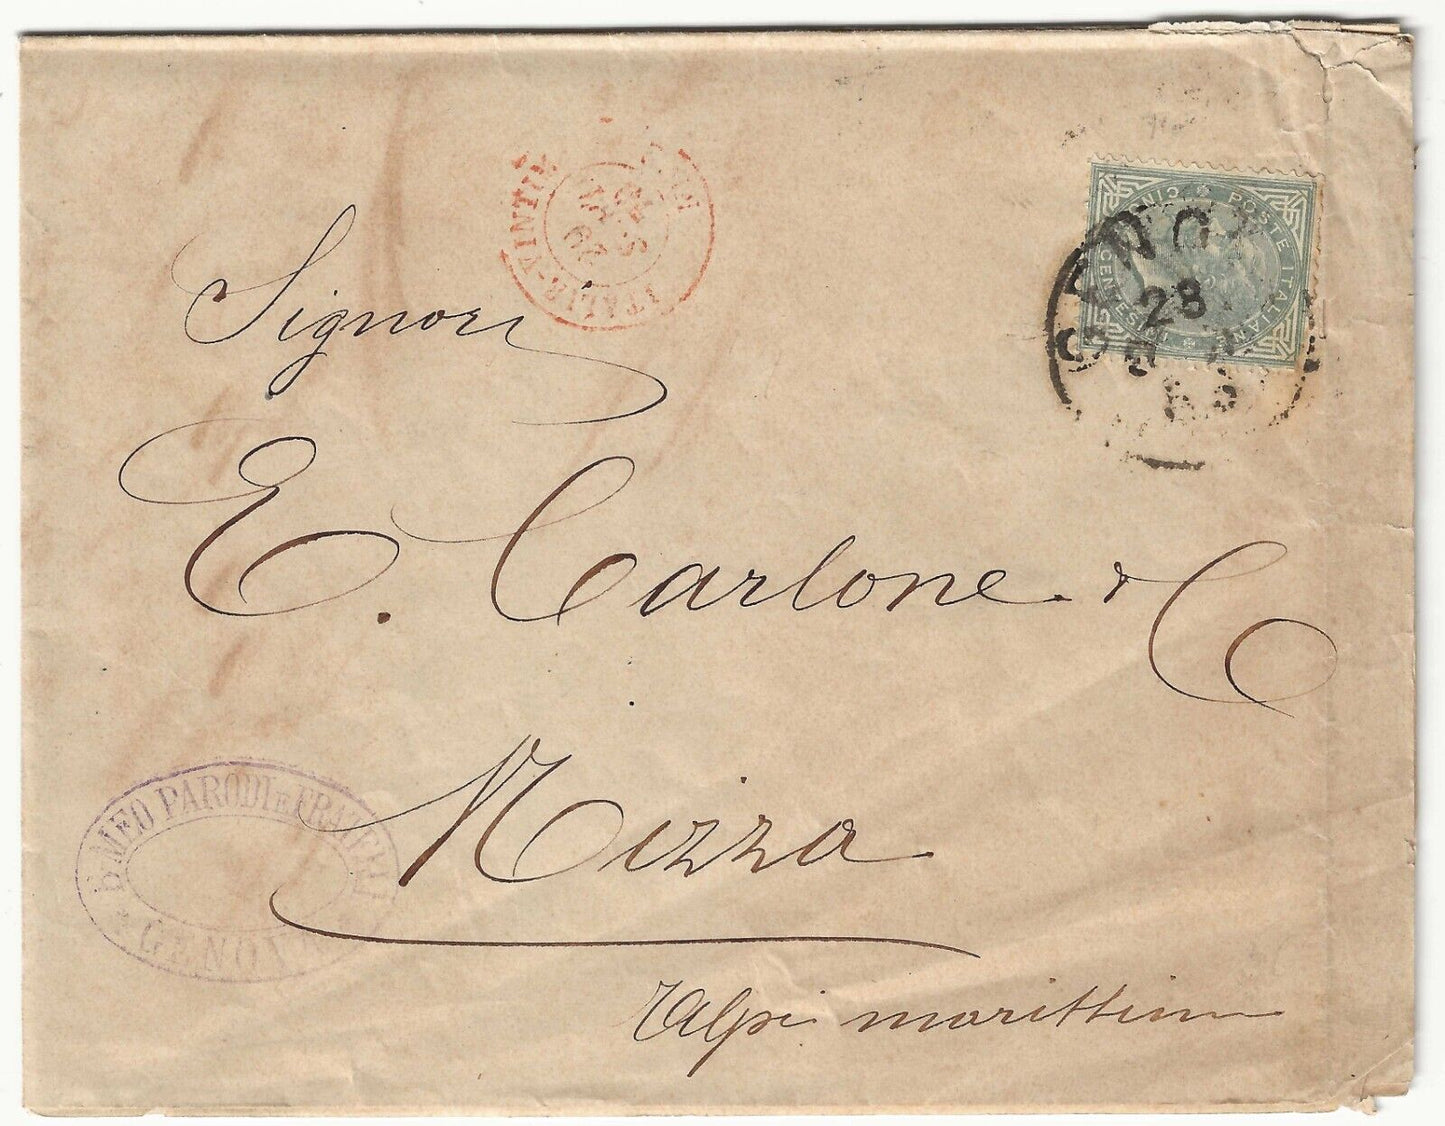 Signori
E. Carlone & C
Nizza
Alpi marittime
POSTE ITALIANE
CENTESIMI
GENOVA
28
ITALIE-VINTIM
B.MEO PARODI E FRATELLI
GENOVA